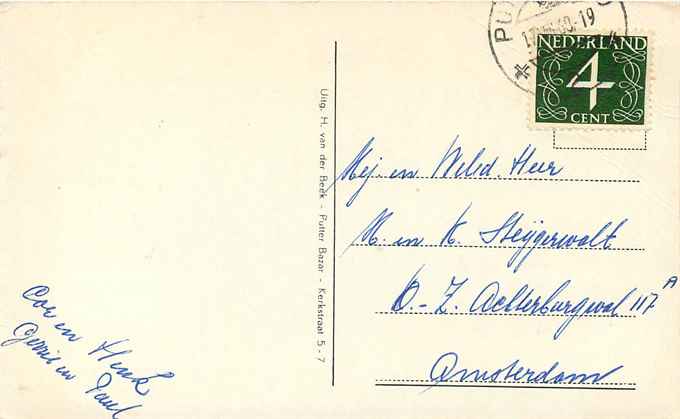 PU
17. 60.-19
NEDERLAND
4
CENT
Uitg. H. van der Beek - Putter Bazar - Kerkstraat 5 - 7
Mej. en Weled. Heer
M. en K. Steijgerwalt
O.-Z. Achterburgwal 117 A
Amsterdam
Cor en Henk
Gerrit en Paul